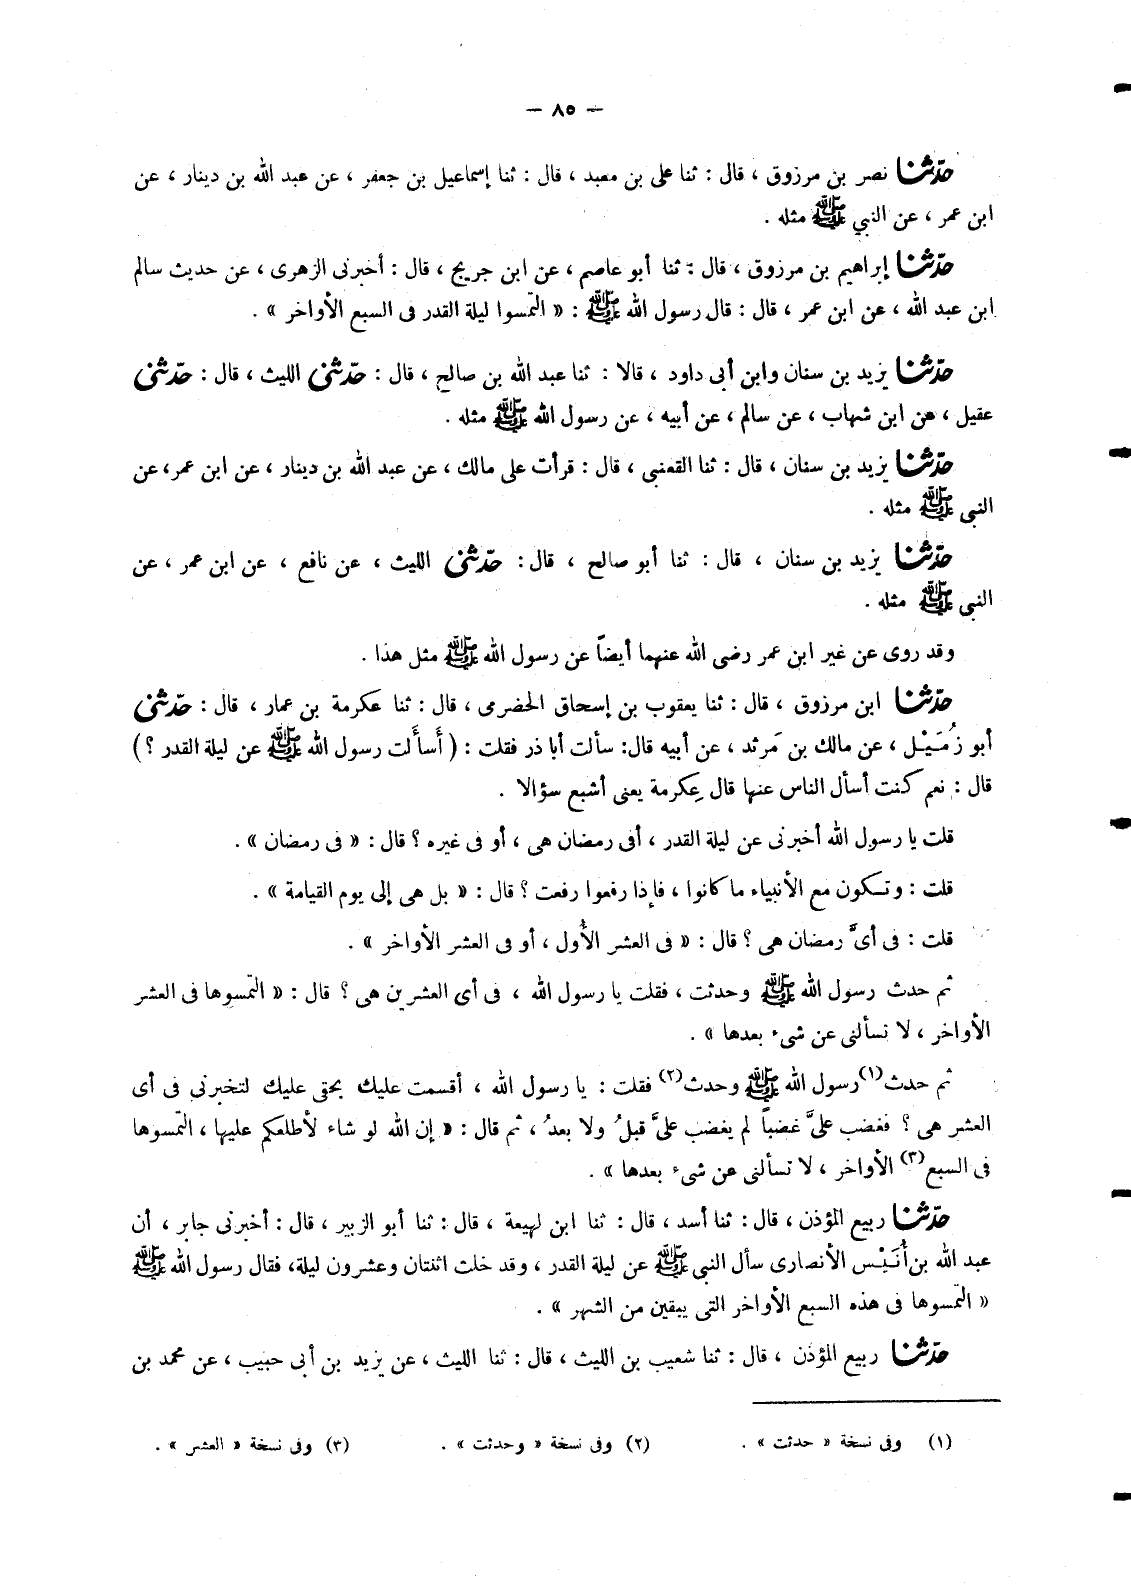 — ٨٥ —
حدّثنا نصر بن مرزوق ، قال : ثنا على بن معبد ، قال : ثنا إسماعيل بن جعفر ، عن عبد الله بن دينار ، عن
ابن عمر ، عن النبي ﷺ مثله .
حدّثنا إبراهيم بن مرزوق ، قال : ثنا أبو عاصم ، عن ابن جريج ، قال : أخبرنى الزهرى ، عن حديث سالم
ابن عبد الله ، عن ابن عمر ، قال : قال رسول الله ﷺ : « التمسوا ليلة القدر فى السبع الأواخر » .
حدّثنا يزيد بن سنان وابن أبى داود ، قالا : ثنا عبد الله بن صالح ، قال : حدّثنى الليث ، قال : حدّثنى
عقيل ، عن ابن شهاب ، عن سالم ، عن أبيه ، عن رسول الله ﷺ مثله .
حدّثنا يزيد بن سنان ، قال : ثنا القعنبى ، قال : قرأت على مالك ، عن عبد الله بن دينار ، عن ابن عمر ، عن
النبى ﷺ مثله .
حدّثنا يزيد بن سنان ، قال : ثنا أبو صالح ، قال : حدّثنى الليث ، عن نافع ، عن ابن عمر ، عن
النبى ﷺ مثله .
وقد روى عن غير ابن عمر رضى الله عنهما أيضاً عن رسول الله ﷺ مثل هذا .
حدّثنا ابن مرزوق ، قال : ثنا يعقوب بن إسحاق الحضرمى ، قال : ثنا عكرمة بن عمار ، قال : حدّثنى
أبو زُمَيْل ، عن مالك بن مَرثد ، عن أبيه قال: سألت أبا ذر فقلت : ( أَسأَلت رسول الله ﷺ عن ليلة القدر ؟ )
قال : نعم كنت أسأل الناس عنها قال عِكرمة يعنى أشبع سؤالا .
قلت يا رسول الله أخبرنى عن ليلة القدر ، أفى رمضان هى ، أو فى غيره ؟ قال : « فى رمضان » .
قلت : وتكون مع الأنبياء ما كانوا ، فإذا رفعوا رفعت ؟ قال : « بل هى إلى يوم القيامة » .
قلت : فى أىِّ رمضان هى ؟ قال : « فى العشر الأُول ، أو فى العشر الأواخر » .
ثم حدث رسول الله ﷺ وحدثت ، فقلت يا رسول الله ، فى أى العشرين هى ؟ قال : « التمسوها فى العشر
الأواخر ، لا تسألنى عن شىء بعدها » .
ثم حدث(١) رسول الله ﷺ وحدث(٢) فقلت : يا رسول الله ، أقسمت عليك بحقى عليك لتخبرنى فى أى
العشر هى ؟ فغضب علىَّ غضباً لم يغضب علىَّ قبلُ ولا بعدُ ، ثم قال : « إن الله لو شاء لأطلعكم عليها ، التمسوها
فى السبع(٣) الأواخر ، لا تسألنى عن شىء بعدها » .
حدّثنا ربيع المؤذن ، قال : ثنا أسد ، قال : ثنا ابن لهيعة ، قال : ثنا أبو الزبير ، قال : أخبرنى جابر ، أن
عبد الله بن أُنَيْس الأنصارى سأل النبى ﷺ عن ليلة القدر ، وقد خلت اثنتان وعشرون ليلة، فقال رسول الله ﷺ
« التمسوها فى هذه السبع الأواخر التى يبقين من الشهر » .
حدّثنا ربيع المؤذن ، قال : ثنا شعيب بن الليث ، قال : ثنا الليث ، عن يزيد بن أبى حبيب ، عن محمد بن
(١) وفى نسخة « حدثت » . (٢) وفى نسخة « وحدثت » . (٣) وفى نسخة « العشر » .